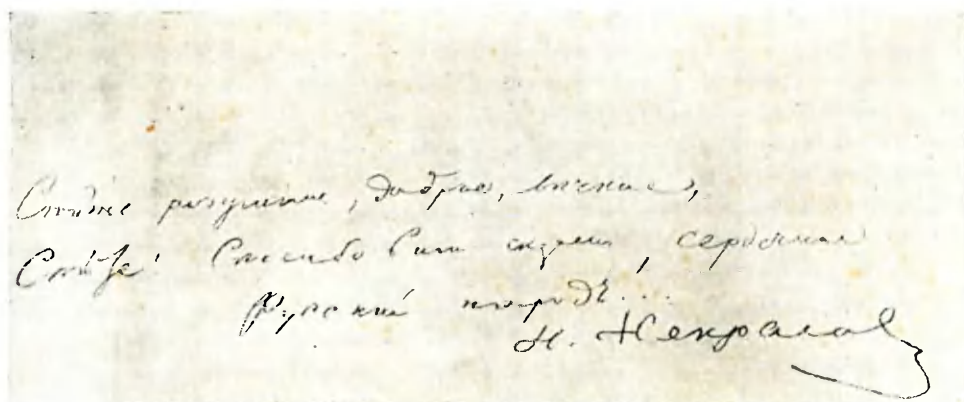 Сѣйте разумное, доброе, вѣчное,
Сѣйте! Спасибо Вам скажет сердечное
Русский народъ...
Н. Некрасов